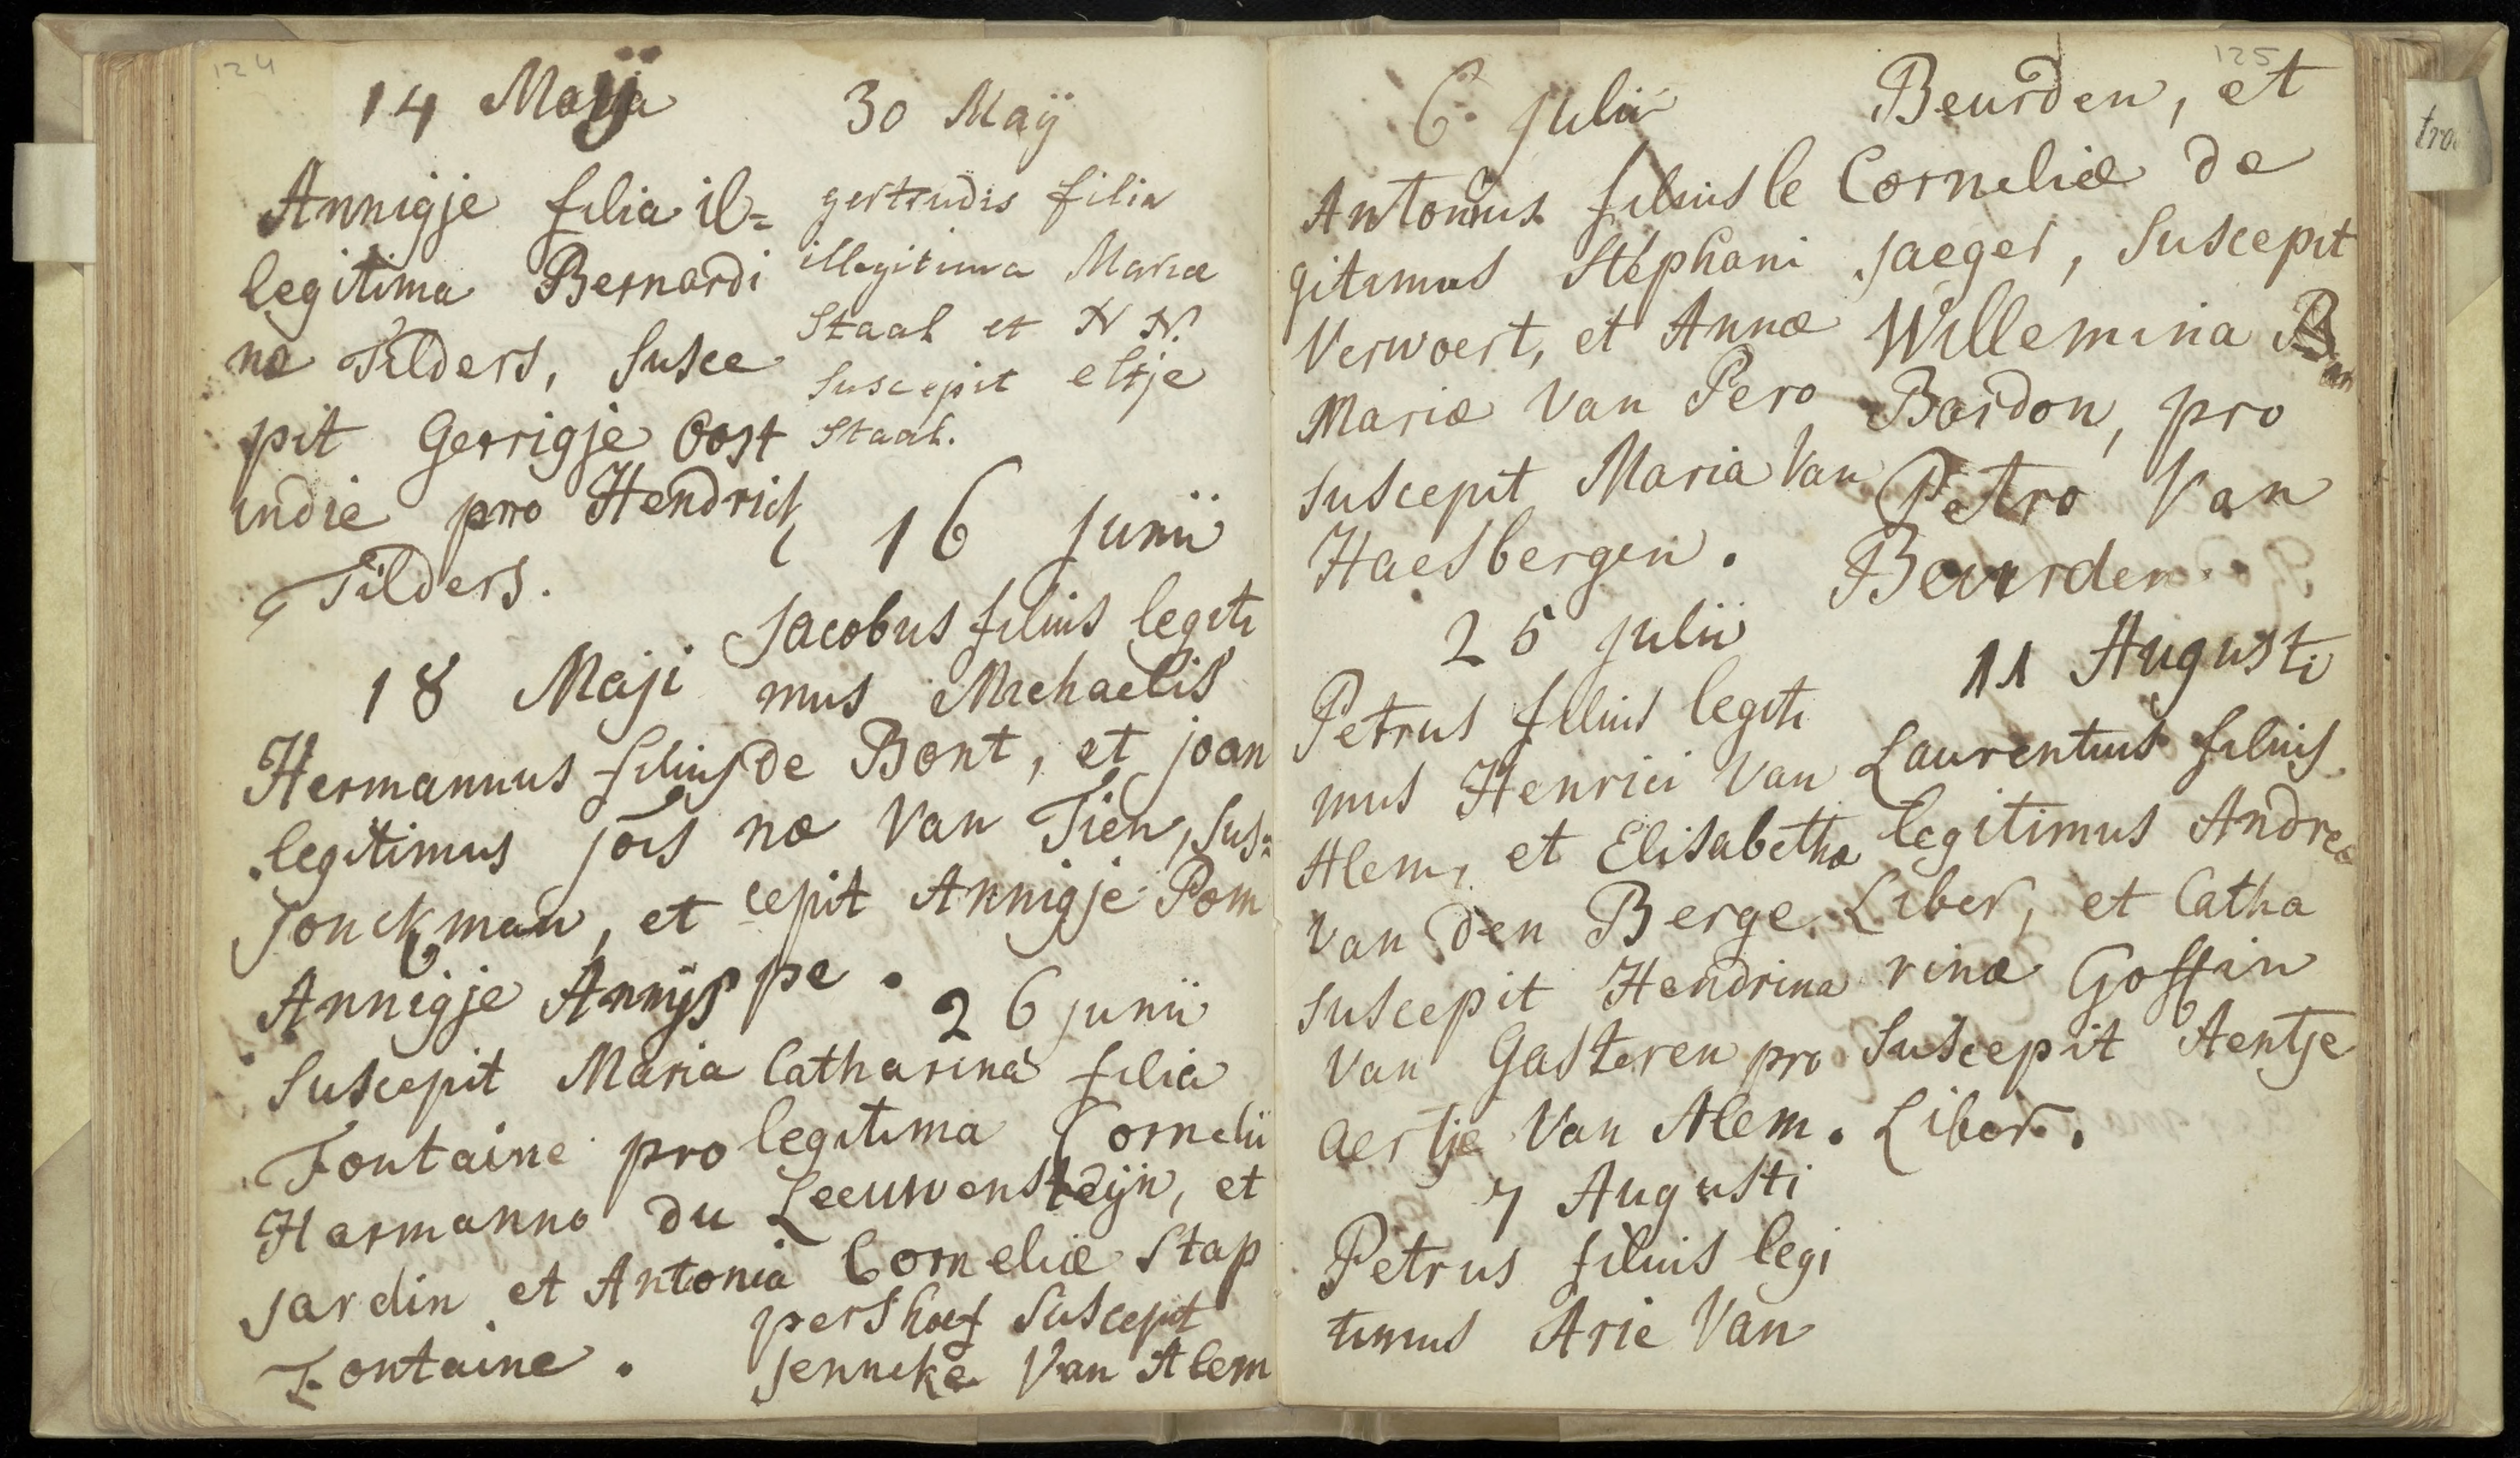 124
14 Maÿ
Annigje filia il=
legitima Bernardi
næ Tilders, susce
pit Gerrigje Oost
indie pro Hendrick
Tilders.
18 Maji
Hermannus filius
legitimus jois
Jonckman, et
Annigje Annÿs
Suscepit Maria
Fontaine pro
Hermanno du
Jardin et Antonia
Fontaine.
30 Maÿ
gertrudis filia
illegitima Mariæ
Staal et N N.
Suscepit eltje
Staal.
16 junii
Jacobus filius legiti
mus Michaelis
de Bont, et joan
næ Van Tien, sus=
cepit Annigje Pom
pe.
26 junii
Catharina filia
legitima Cornelii
Leeuwensteÿn, et
Corneliæ Stap
pershoef Suscepit
Jenneke Van Alem
125
6 julii
Antonius filius le
gitimus Stephani
Verwoert, et Annæ
Mariæ Van Pero
suscepit Maria Van
Haesbergen.
25 julii
Petrus filius legiti
mus Henrici Van
Alem, et Elisabethæ
Van den Berge
suscepit Hendrina
Van Gasteren pro
Aertje Van Alem.
7 Augusti
Petrus filius legi
timus Arie Van
Beurden, et
Corneliæ de
Jaeger, Suscepit
Willemina
Bardon, pro
Petro Van
Beurden.
11 Augusti
Laurentius filius
legitimus Andreæ
Liber, et Catha
rinæ Goffin
Suscepit Aentje
Liber.